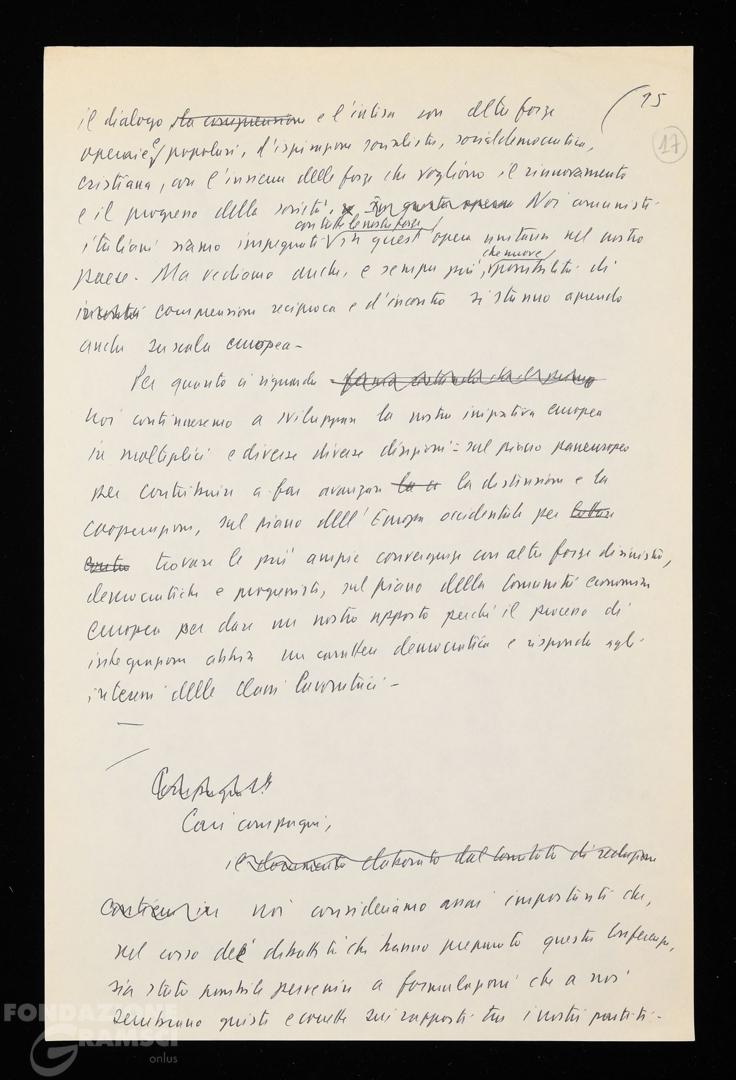 15
17
il dialogo la comprensione e l'intesa con altre forze
operaie e popolari, d'ispirazione socialista, socialdemocratica,
cristiana, con l'insieme delle forze che vogliono il rinnovamento
e il progresso della società. In questa opera Noi comunisti
con tutte le nostre forze
italiani siamo impegnati in quest'opera unitaria nel nostro
che nuove
paese. Ma vediamo anche, e sempre più, possibilità di
comprensione reciproca e d'incontro si stanno aprendo
anche su scala europea -
Per quanto ci riguarda
noi continueremo a sviluppare la nostra iniziativa europea
in molteplici e diverse diverse direzioni: sul piano paneuropeo
per contribuire a far avanzare la distensione e la
cooperazione, sul piano dell'Europa occidentale per lottare
contro trovare le più ampie convergenze con altre forze di sinistra,
democratiche e progressiste, sul piano della Comunità economica
europea per dare un nostro apporto perché il processo di
integrazione abbia un carattere democratico e risponda agli
interessi delle classi lavoratrici -
Cari compagni,
il documento elaborato dal comitato di redazione
contiene noi consideriamo assai importanti che,
nel corso dei dibattiti che hanno preparato questa Conferenza,
sia stato possibile pervenire a formulazioni che a noi
sembrano giuste e corrette sui rapporti tra i nostri partiti -
FONDAZIONE
GRAMSCI
onlus